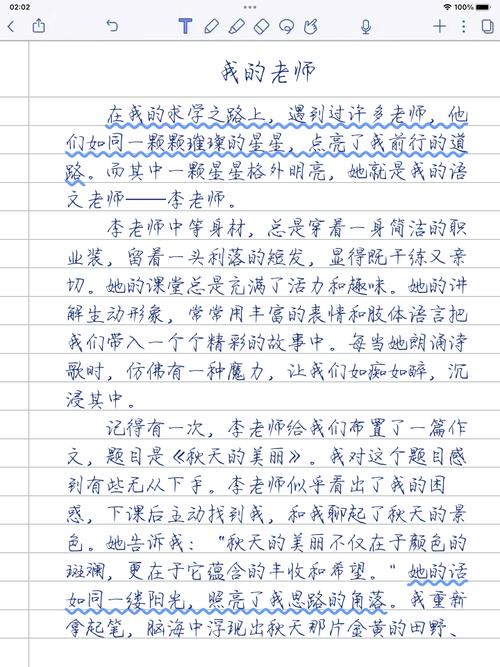 02:02
100%
我的老师
在我的求学之路上，遇到过许多老师，他
们如同一颗颗璀璨的星星，点亮了我前行的道
路。而其中一颗星星格外明亮，她就是我的语
文老师——李老师。
李老师中等身材，总是穿着一身简洁的职
业装，留着一头利落的短发，显得既干练又亲
切。她的课堂总是充满了活力和趣味。她的讲
解生动形象，常常用丰富的表情和肢体语言把
我们带入一个个精彩的故事中。每当她朗诵诗
歌时，仿佛有一种魔力，让我们如痴如醉，沉
浸其中。
记得有一次，李老师给我们布置了一篇作
文，题目是《秋天的美丽》。我对这个题目感
到有些无从下手。李老师似乎看出了我的困
惑，下课后主动找到我，和我聊起了秋天的景
色。她告诉我：“秋天的美丽不仅在于颜色的
斑斓，更在于它蕴含的丰收和希望。”她的话
如同一缕阳光，照亮了我思路的角落。我重新
拿起笔，脑海中浮现出秋天那片金黄的田野、